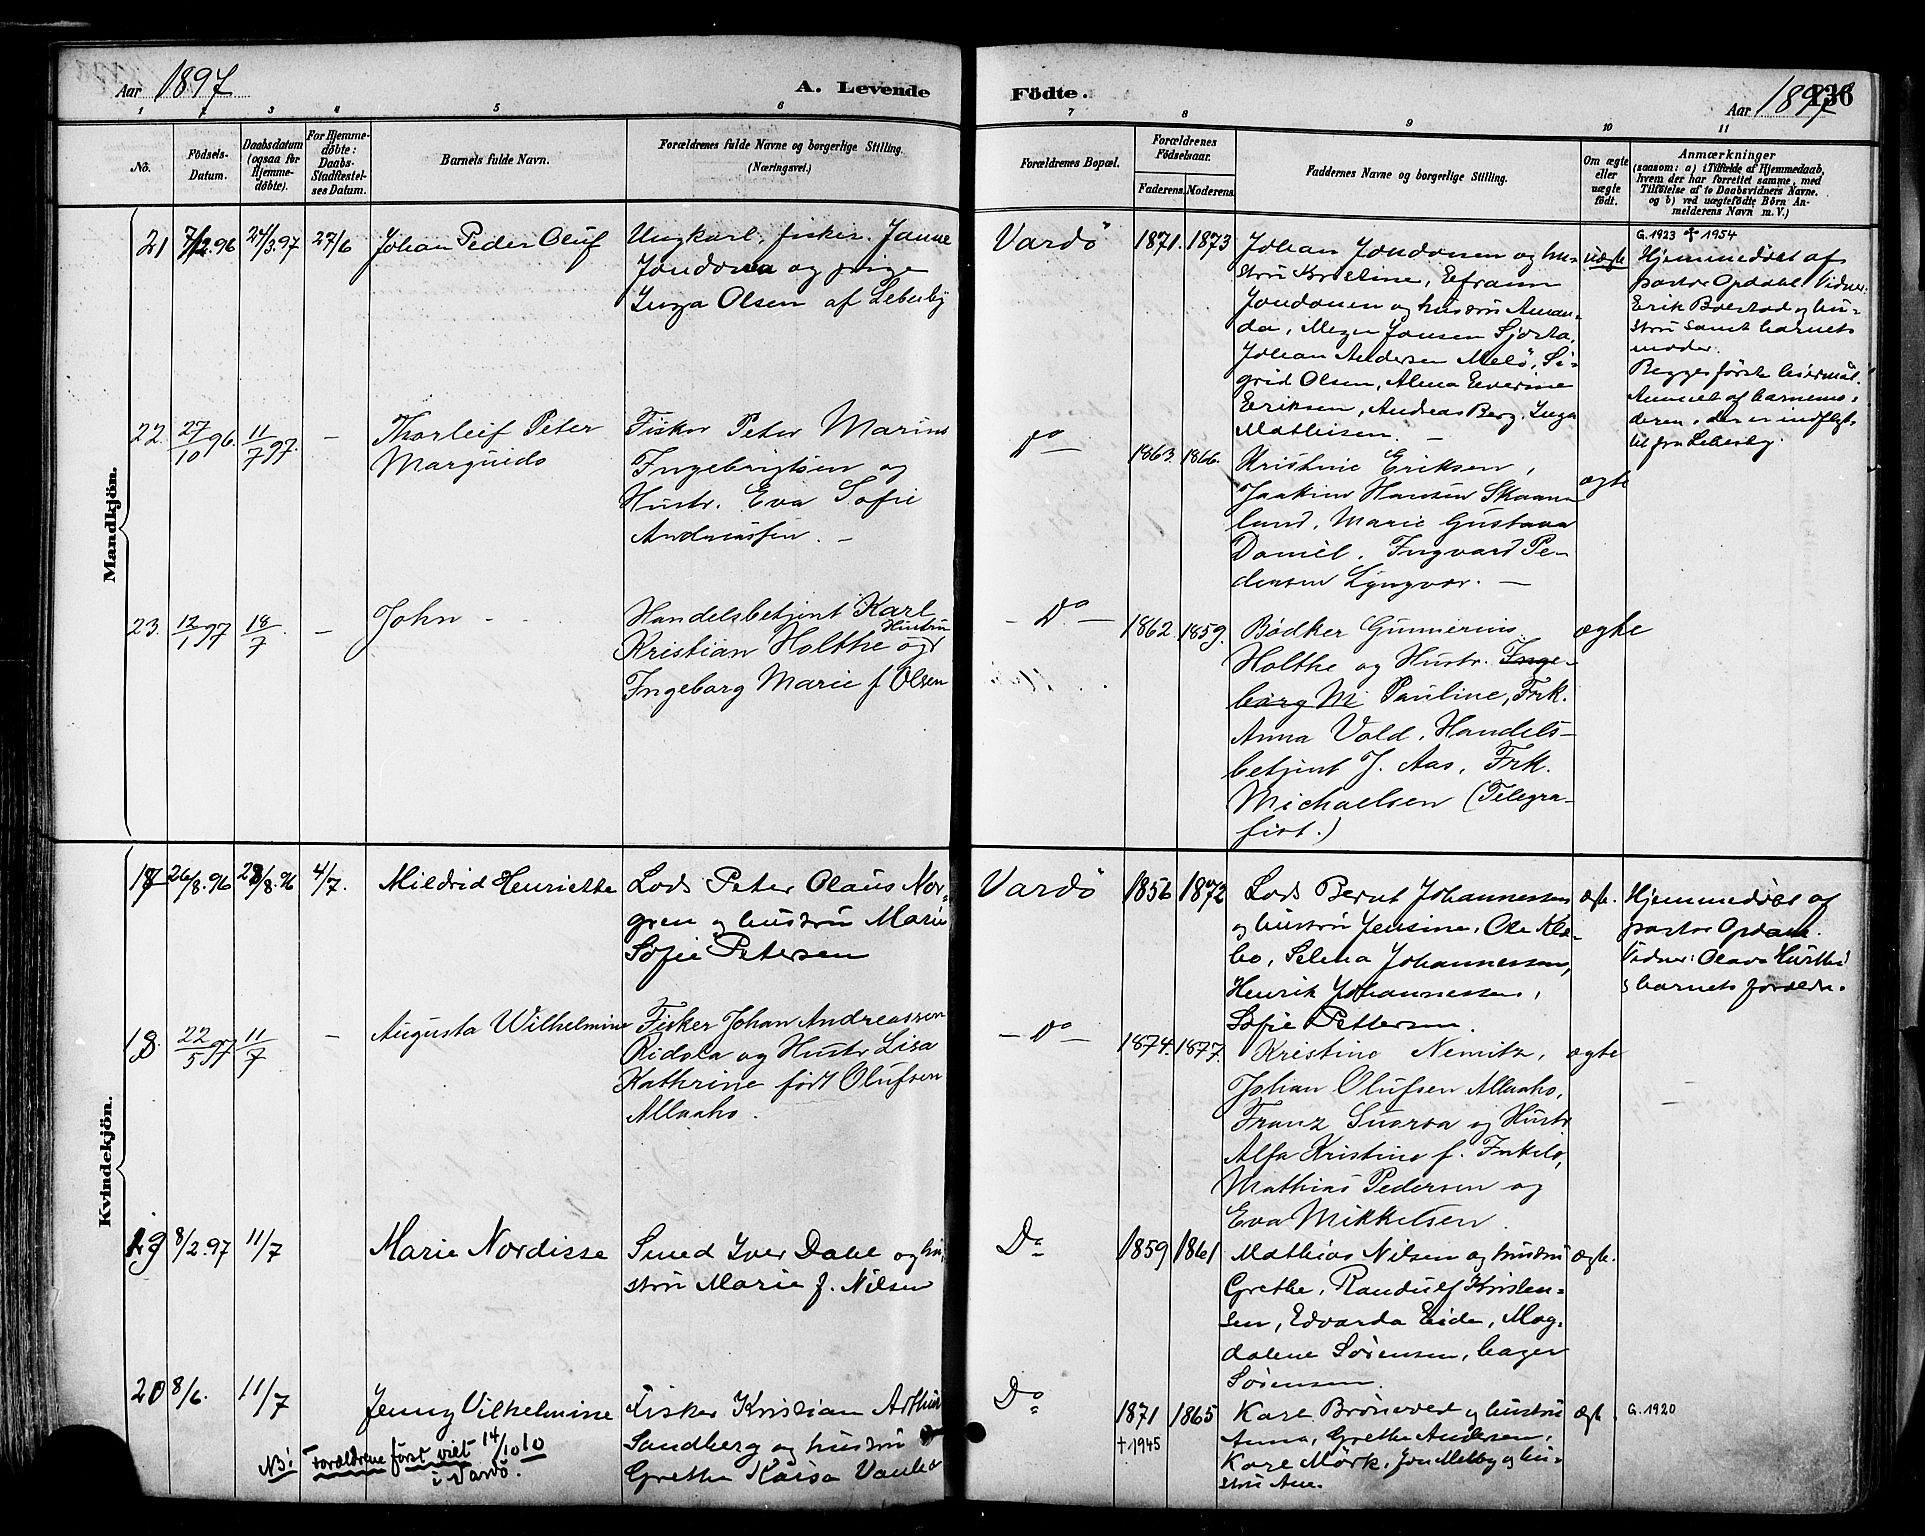 Aar 1897
A. Levende
Födte.
Aar 1897
136
1 2 3 4 5 6 7 8 9 10 11
No.
Födsels-Datum.
Daabsdatum (ogsaa for Hjemme-döbte).
For Hjemme-döbte: Daabs-Stadfæstel-ses Datum.
Barnets fulde Navn.
Forældrenes fulde Navne og borgerlige Stilling.
(Næringsvei.)
Forældrenes Bopæl.
Forældrenes Födselsaar.
Faderens. Moderens.
Faddernes Navne og borgerlige Stilling.
Om ægte eller uægte födt.
Anmærkninger
(saasom: a) i Tilfælde af Hjemmedaab,
hvem der har forrettet samme, med
Tilföielse af to Daabsvidners Navne.
og b) ved uægtefödte Börn An-
melderens Navn m. V.)
Mandkjön.
21 7/12.96 24/3.97 27/6 Johan Peder Oluf
Ungkarl, fisker Janne
og pige
Inga Olsen af Lebesby
Vardö 1871. 1873
Johan Jondonen og hu-
stru Kristine, Efraim
Jondonen og hustru Aman-
da, Jonsen
Johan Andersen Melö, Si-
grid Olsen, Alma Eeverine
Eriksen, Andreas Berg, Inga
Mathisen. —
uægte
G. 1923 ✝ 1954
Hjemmedöbt af
pastor Opdahl Vidner:
Erik Boestad og hu-
stru samt barnets
moder.
Begges förste leiermål.
Anmeldt af barnemo-
deren, der er indflyt-
tet fra Lebesby.
22. 27/10 96. 11/7 97. — Thorleif Peter
Marguido
Fisker Peter Marius
Ingebrigtsen og
Hustr. Eva Sofie
Andreassen. —
Do — 1863. 1866.
Kristine Eriksen,
Joakim Hansen Skaan-
land, Marie Gustava
Daniel, Ingvard Pe-
dersen Lyngvær. —
ægte
23. 12/1 97 18/7. — John
Handelsbetjent Karl
Kristian Holthe og Hustru
Ingeborg Marie f Olsen
— Do — 1862. 1859.
Bödker Gunnerius
Holthe og Hustr. Inge-
borg M Pauline, Frk.
Anna Vold, Handels-
betjent J. Aas, Frk.
Michaelsen (Telegra-
fist.)
ægte
Kvindekjön.
17 26/8.96 28/8.96 4/7. Mildrid Henriette
Lods Peter Olaus Nor-
gren og hustru Marie
Sofie Petersen
Vardö 1856 1872
Lods Bernt Johannessen
og hustru Jensine, Ole
Selma Johannessen,
Henrik Johannessen,
Sofie Pettersen.
ægte.
Hjemmedöbt af
pastor Opdahl.
Vidner: Olava
barnets forældre.
18. 22/5 97 11/7 — Augusta Wilhelmine
Fisker Johan Andreassen
Ridola og Hustr Lisa
Kathrine född Olufsen
Allaaho.
— Do — 1874. 1877.
Kristine Nemitz,
Johan Olufsen Allaaho,
Franz Suorsa og Hustr
Alfa Kristine f.
Mathias Pedersen og
Eva Mikkelsen.
ægte
—
19 8/2.97 11/7 Marie Nordisse
Smed Iver Dahl og hu-
stru Marie f. Nilsen
Do 1859 1861
Mathias Nilsen og hustru
Grethe, Randulf Kristen-
sen, Edvarda Eide, Mag-
dalene Sörensen, bager
Sörensen.
ægte.
20 8/6. 11/7 Jenny Vilhelmine
Fisker Kristian Arthur
Sandberg og hustru
Grethe Kaisa
Do 1871 1865
✝ 1945
Karl og hustru
Anna, Grethe Andersen,
Kare Mörk, Jon Melby og hu-
stru Ane.
ægte
G. 1920
NB! Forældrene först viet 14/10 10
i Vardö.